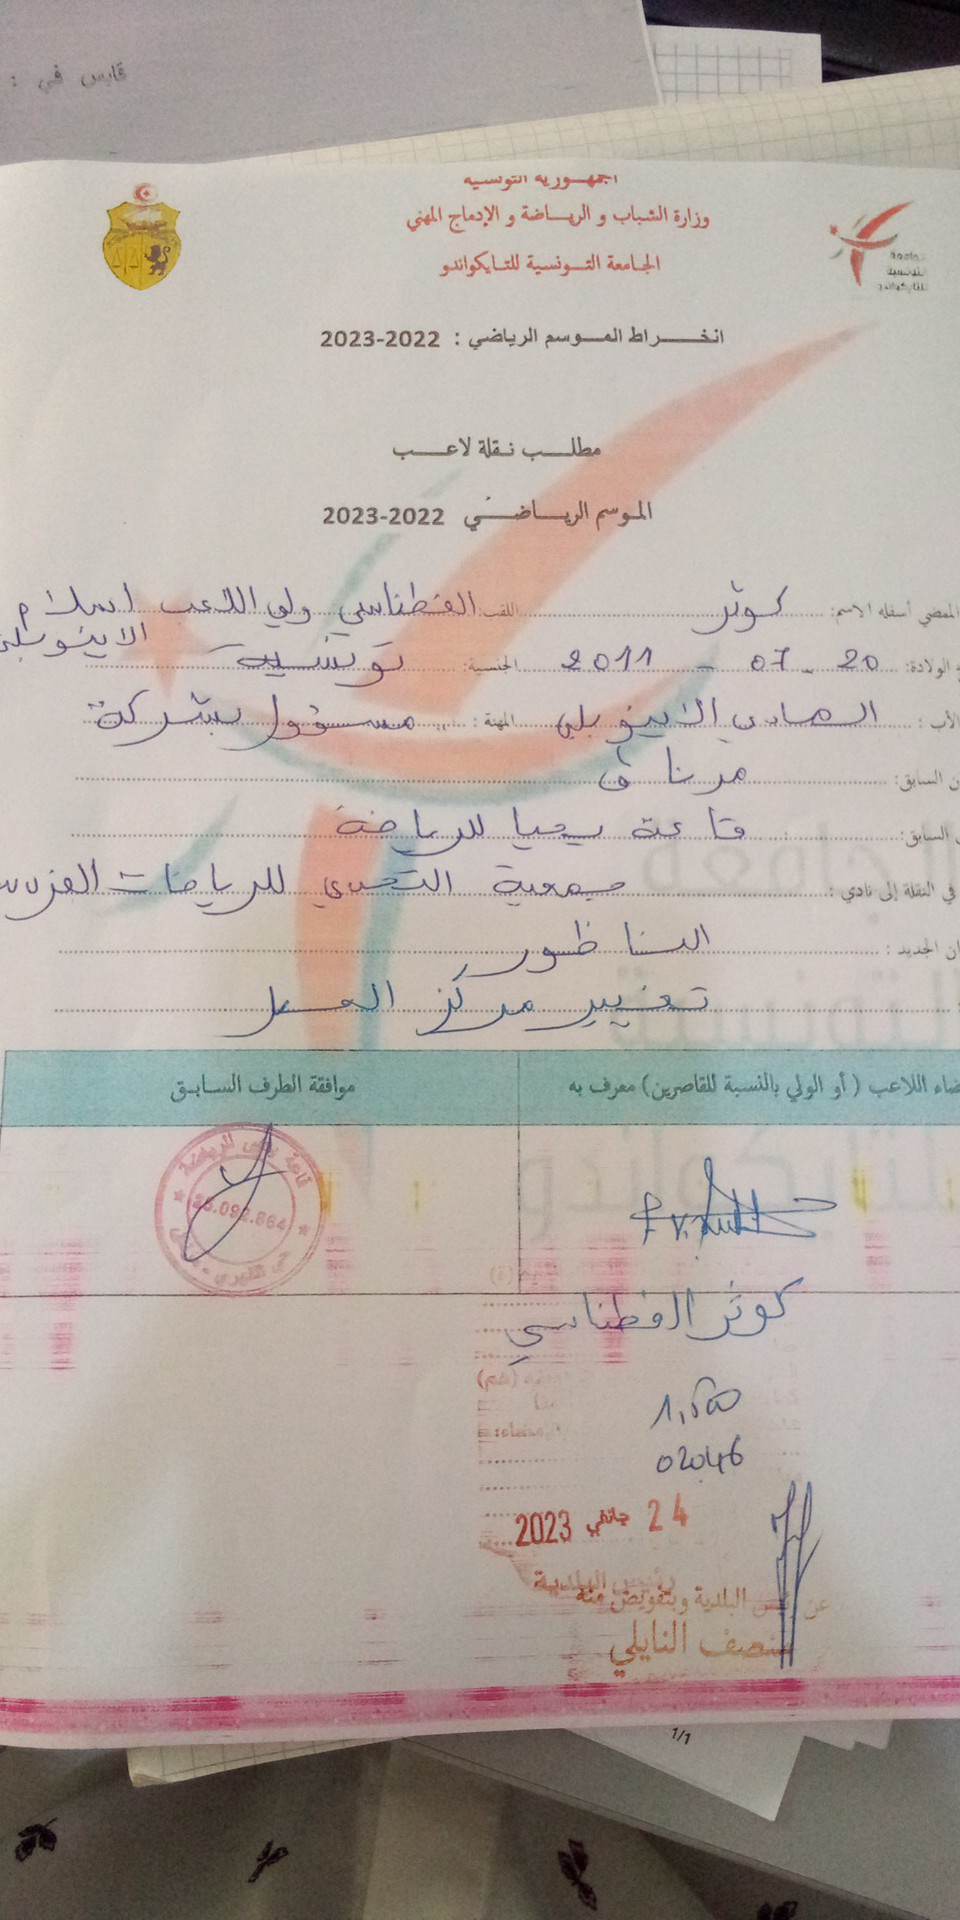 قابس في :
الجمهورية التونسية
وزارة الشباب و الرياضة و الإدماج المهني
الجامعة التونسية للتايكواندو
انخراط الموسم الرياضي : 2022-2023
مطلب نقلة لاعب
الموسم الرياضي 2022-2023
الممضي أسفله الاسم: كوثر اللقب الفطناسي ولي اللاعب اسلام
الولادة: 20 - 07 - 2011 الجنسية: تونسية
الأب : الهادي المهنة : مسؤول بشركة
السابق: مرناق
السابق: قاعة يحيا للرياضة
في النقلة إلى نادي : جمعية التحدي للرياضات
الجديد : الناظور
تغيير مركز العمل
اللاعب ( أو الولي بالنسبة للقاصرين) معرف به
موافقة الطرف السابق
كوثر الفطناسي
02046
24 جانفي 2023
عن رئيس البلدية وبتفويض منه
منصف النايلي
1/1